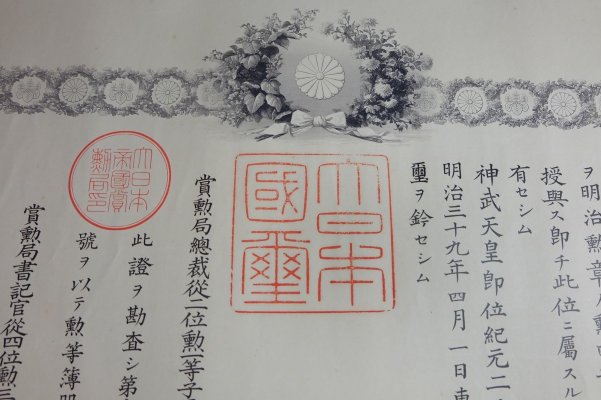 授與ス即チ此位ニ屬スル
有セシム
神武天皇即位紀元二
明治三十九年四月一日東
璽ヲ鈐セシム
大日本
國璽
賞勲局總裁從一位勲一等子
大日本
帝國賞
勲局印
此證ヲ勘査シ第
號ヲ以テ勲等簿
賞勲局書記官從四位勲三